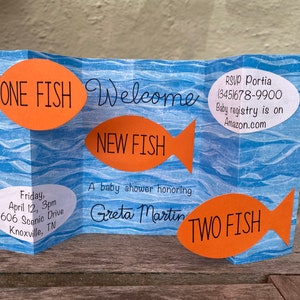 ONE FISH
Welcome
RSVP Portia
(345)678-9900
Baby registry is on
Amazon.com
NEW FISH
A baby shower honoring
Greta Martin
Friday,
April 12, 3pm
606 Scenic Drive
Knoxville, TN
TWO FISH